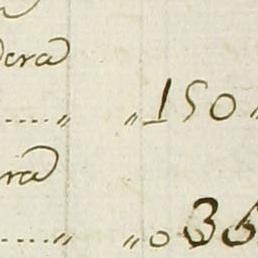 dera
....." "150"
ra
....." "036